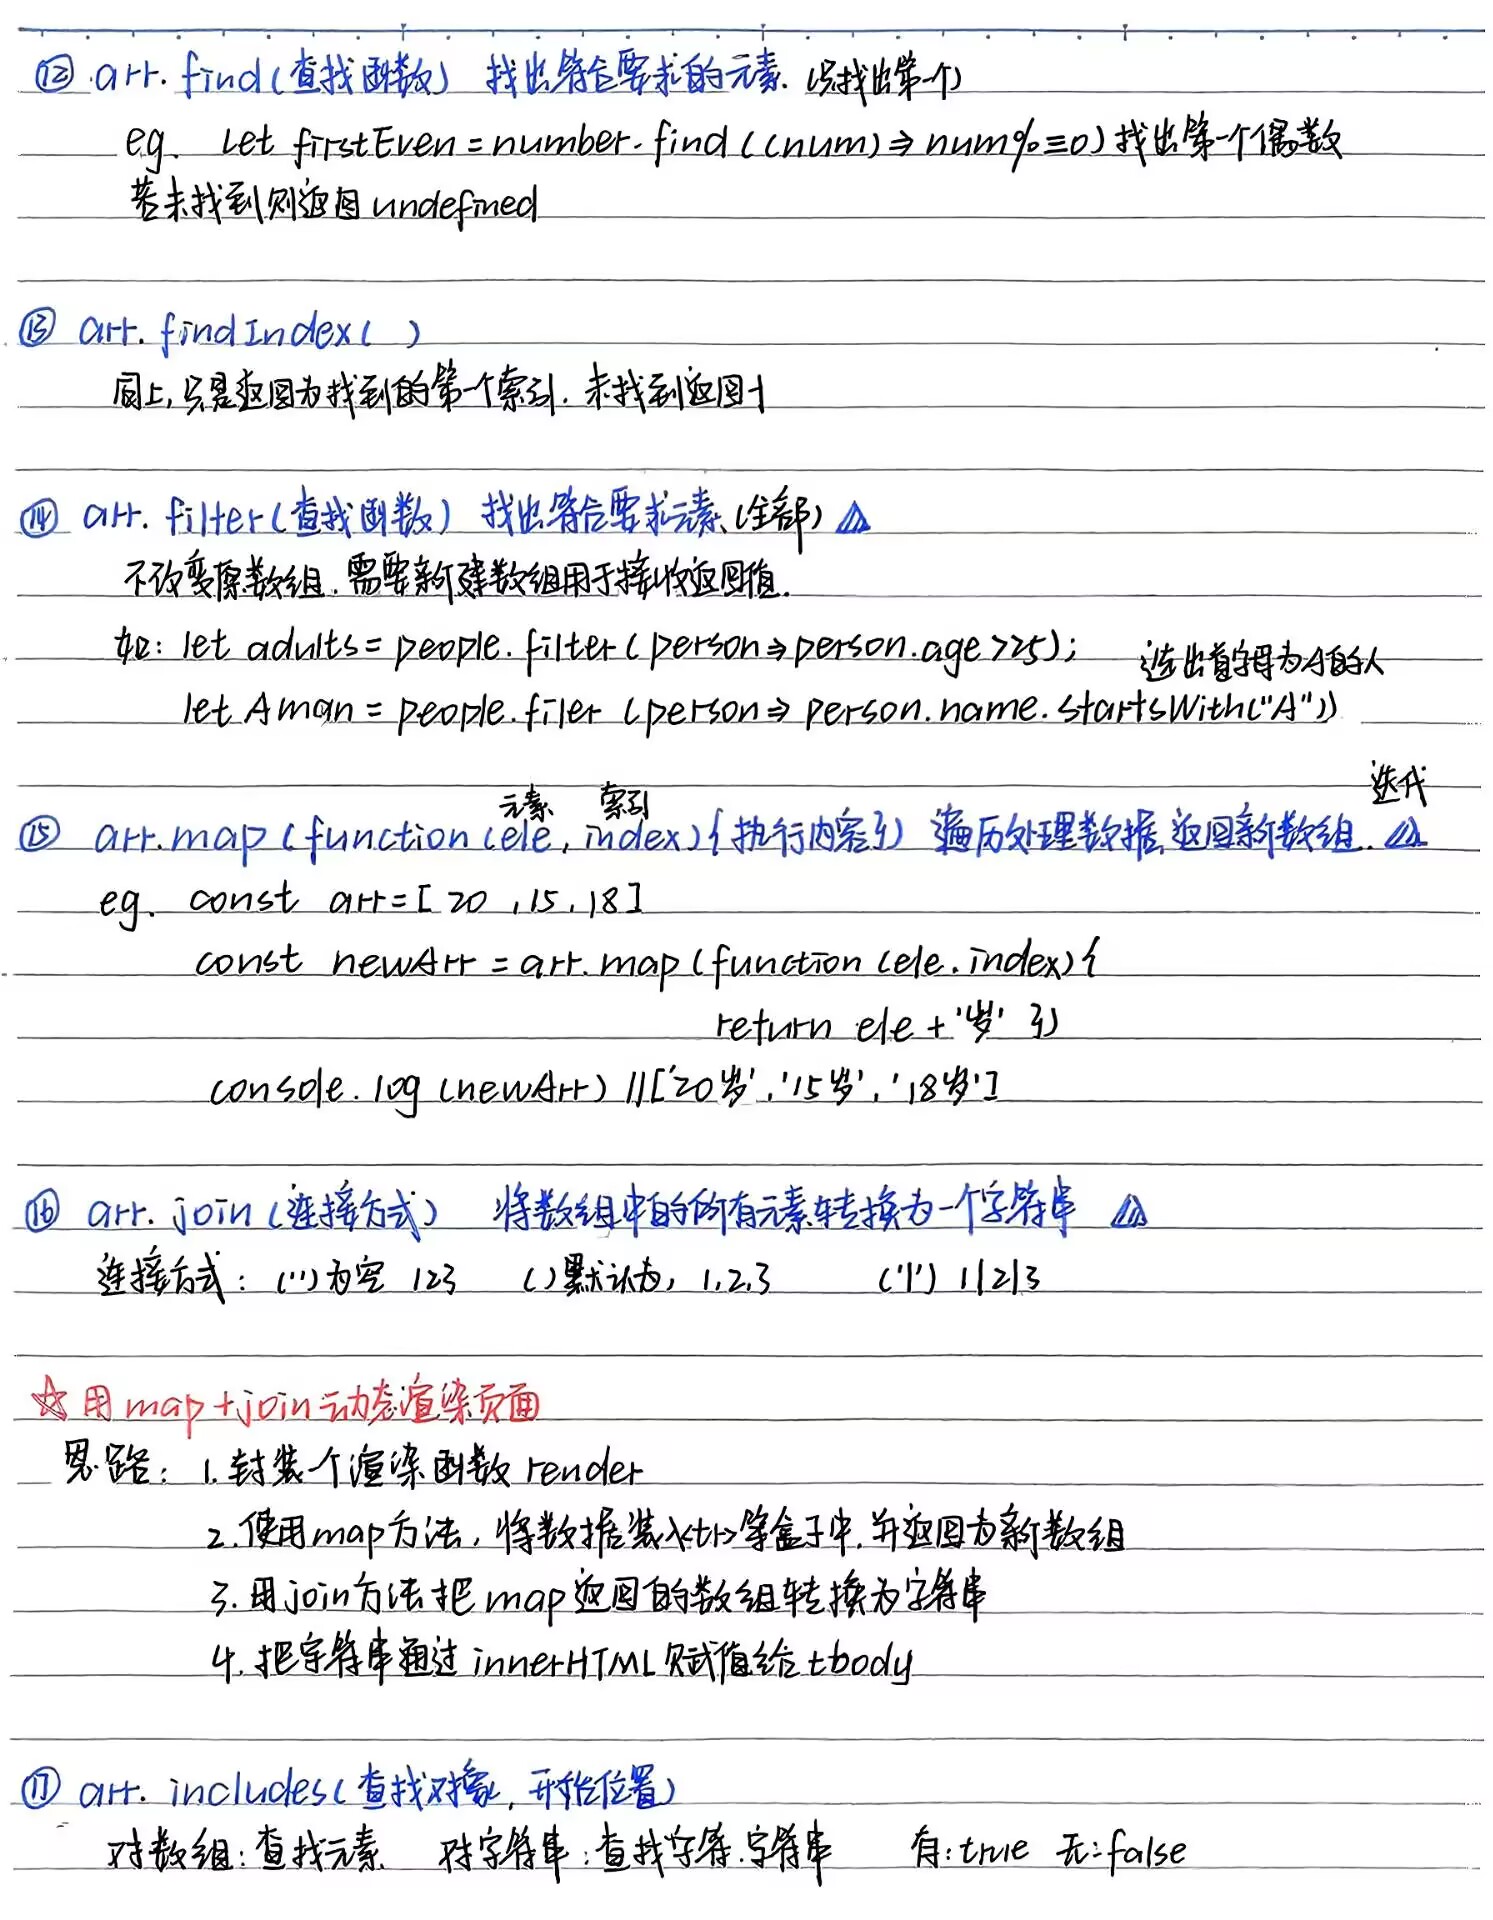 ⑫ arr.find(查找函数) 找出符合要求的元素.(只找出第一个)
eg. let firstEven = number.find((num)⇒num%≡0)找出第一个偶数
若未找到则返回undefined
⑬ arr.findIndex( )
同上,只是返回为找到的第一个索引.未找到返回-1
⑭ arr.filter(查找函数) 找出符合要求元素.(全部)
不改变原数组.需要新建数组用于接收返回值.
如: let adults = people.filter(person⇒person.age>25);
选出首字母为A的人
let Aman = people.filer(person⇒person.name.startsWith("A"))
元素 索引 迭代
⑮ arr.map(function(ele,index){执行内容}) 遍历处理数据,返回新数组.
eg. const arr=[20,15,18]
const newArr = arr.map(function(ele.index){
return ele+'岁' })
console.log(newArr) //['20岁','15岁','18岁']
⑯ arr.join(连接方式) 将数组中的所有元素转换为一个字符串
连接方式: ('')为空 123 ()默认为, 1,2,3 ('|') 1|2|3
☆用map+join动态渲染页面
思路: 1.封装个渲染函数render
2.使用map方法,将数据装入<tr>等盒子中,并返回为新数组
3.用join方法把map返回的数组转换为字符串
4.把字符串通过innerHTML赋值给tbody
⑰ arr.includes(查找对象,开始位置)
对数组:查找元素 对字符串:查找字符.字符串 有:true 无:false